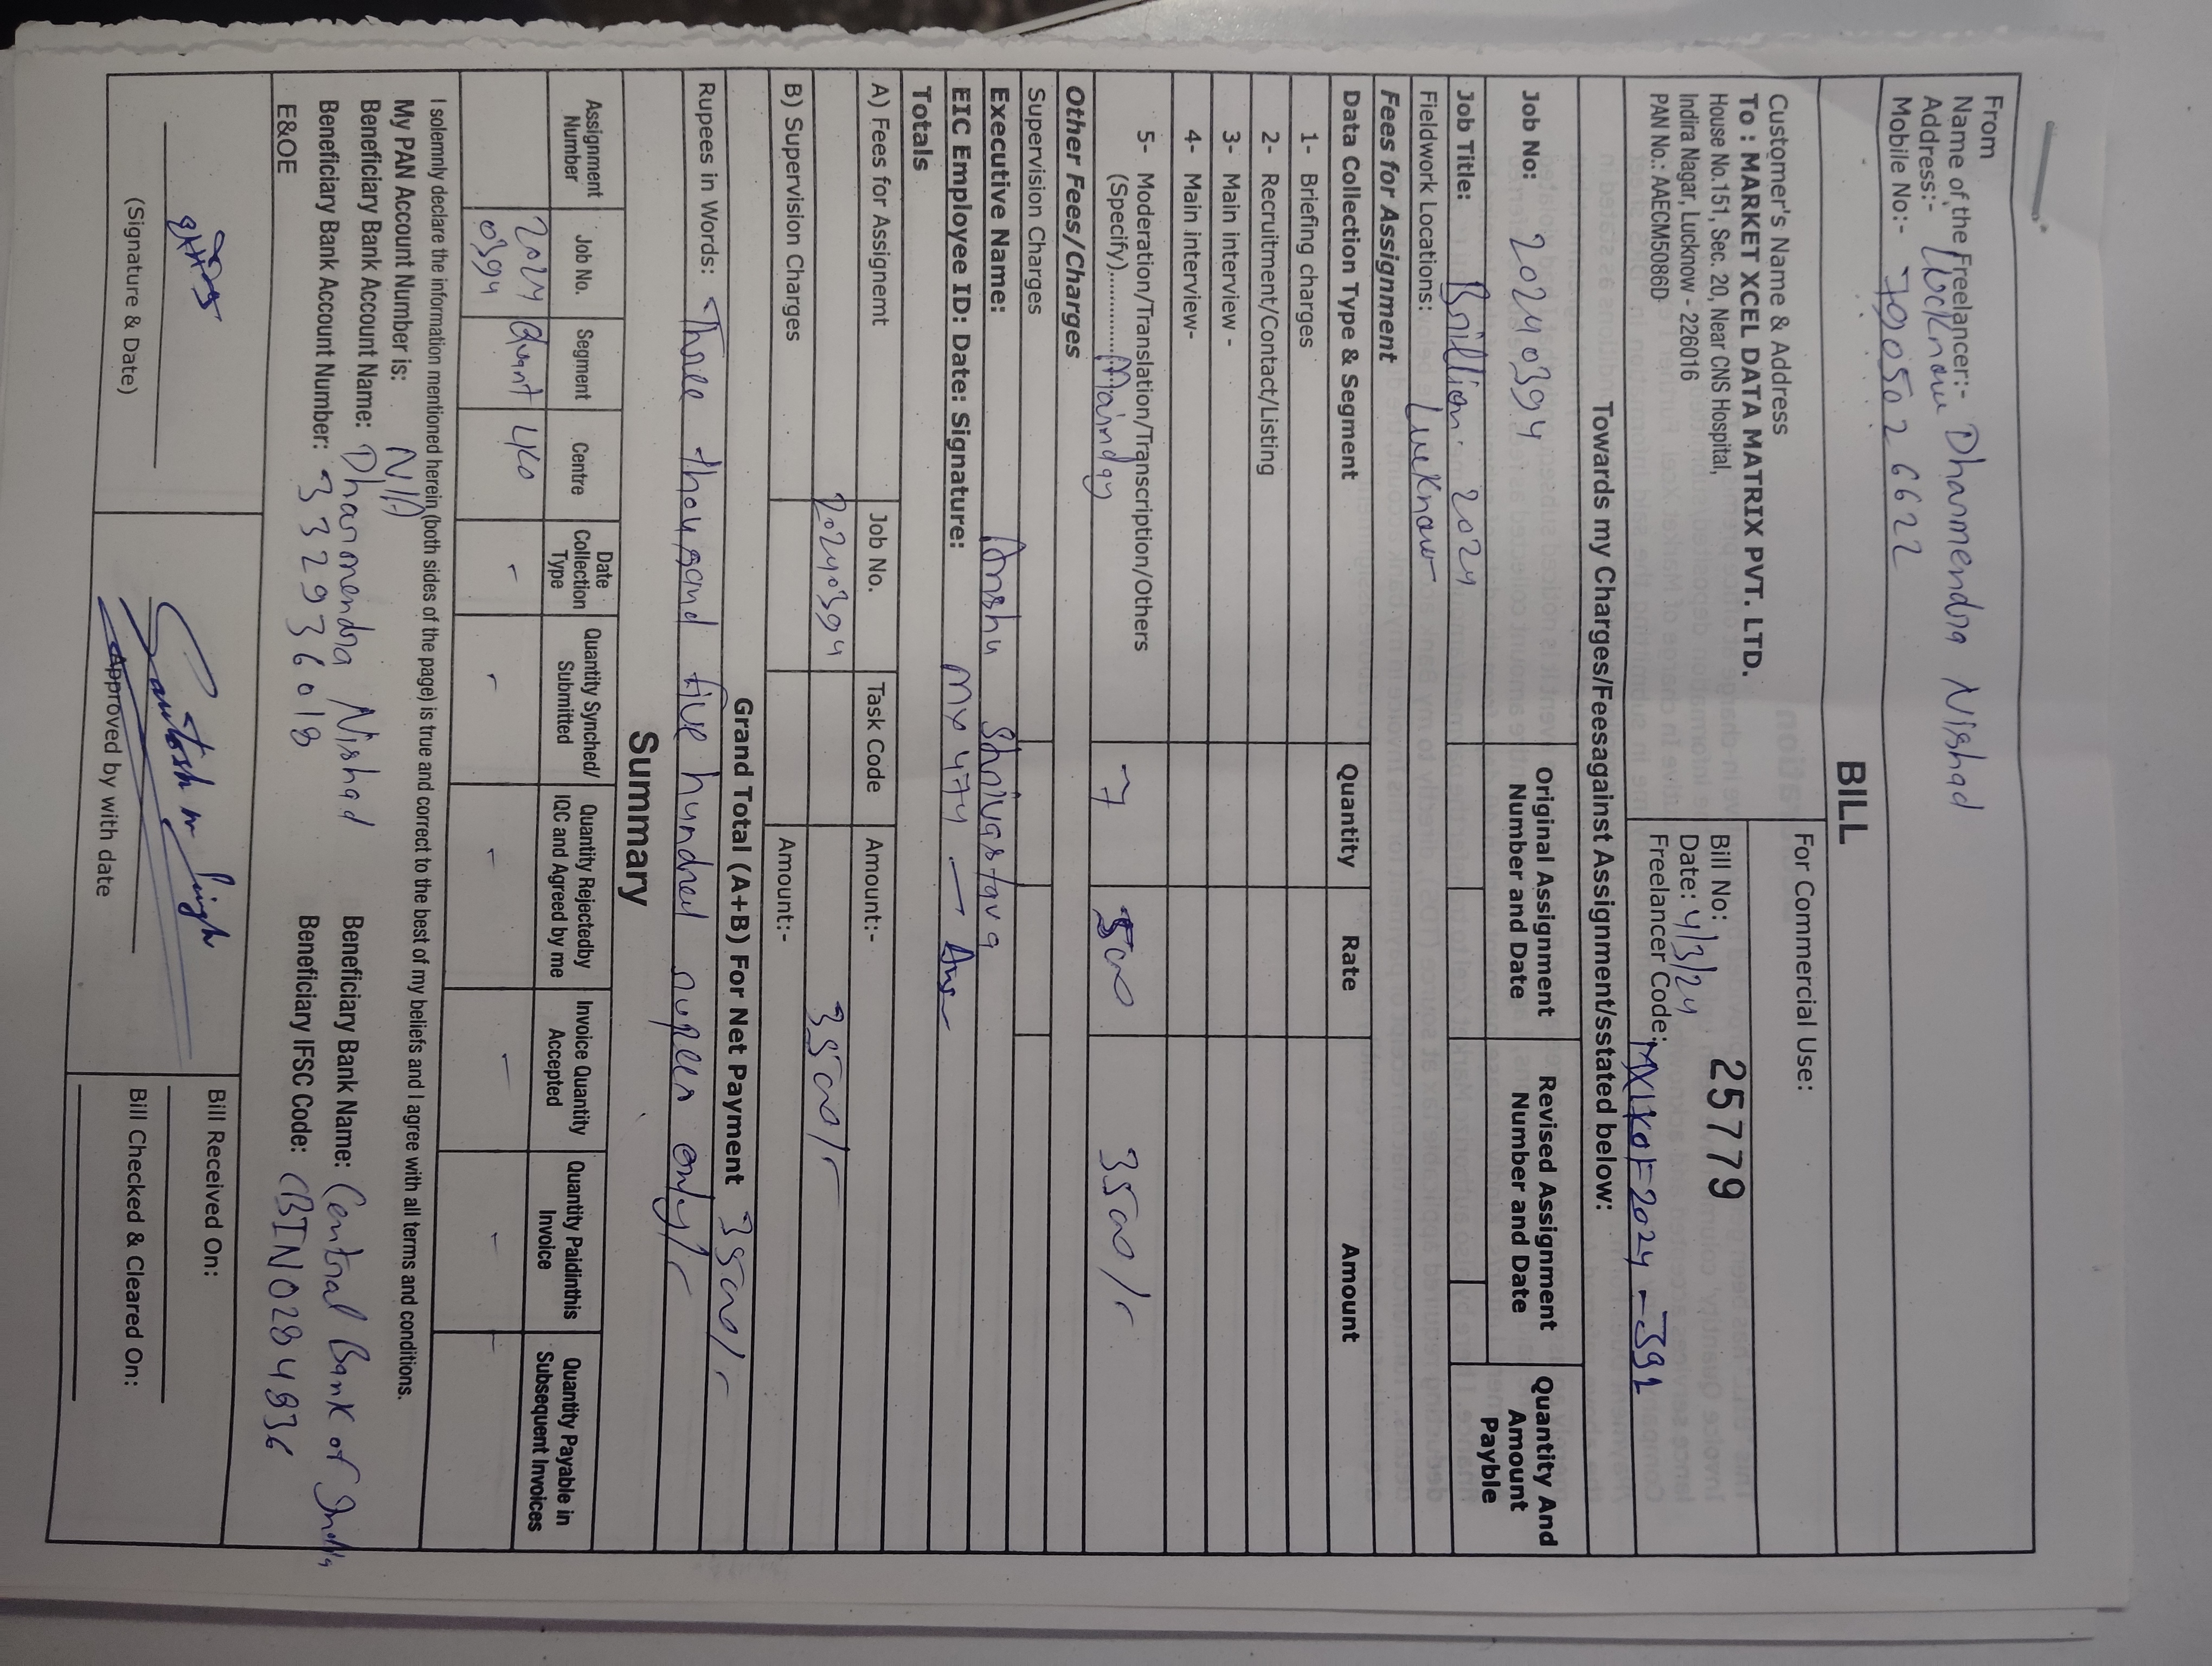 From
Name of the Freelancer:- Dharmendra Nishad
Address:- Lucknow
Mobile No:- 7905026622
BILL
Customer's Name & Address
To : MARKET XCEL DATA MATRIX PVT. LTD.
House No.151, Sec. 20, Near CNS Hospital,
Indira Nagar, Lucknow - 226016
PAN No.: AAECM5086D
For Commercial Use:
Bill No: 25779
Date: 4/3/24
Freelancer Code:
Towards my Charges/Feesagainst Assignment/sstated below:
Job No: 20240394
Original Assignment Number and Date
Revised Assignment Number and Date
Quantity And Amount Payble
Job Title: 2024
Fieldwork Locations: Lucknow
Fees for Assignment
Data Collection Type & Segment Quantity Rate Amount
1- Briefing charges
2- Recruitment/Contact/Listing
3- Main interview -
4- Main interview-
5- Moderation/Translation/Transcription/Others
(Specify)............ Mainday 7 500 3500/-
Other Fees/Charges
Supervision Charges
Executive Name: Anshu Shrivastava
EIC Employee ID: Date: Signature: MX 474 —
Totals
A) Fees for Assignemt Job No. Task Code Amount:-
20240394 3500/-
B) Supervision Charges Amount:-
Grand Total (A+B) For Net Payment 3500/-
Rupees in Words: Three thousand five hundred rupees only/-
Summary
Assignment Number Job No. Segment Centre Date Collection Type Quantity Synched/ Submitted Quantity Rejectedby IQC and Agreed by me Invoice Quantity Accepted Quantity Paidinthis Invoice Quantity Payable in Subsequent Invoices
2024 0394 Quant LKO - - - - - -
I solemnly declare the information mentioned herein (both sides of the page) is true and correct to the best of my beliefs and I agree with all terms and conditions.
My PAN Account Number is:
Beneficiary Bank Account Name: Dharmendra Nishad Beneficiary Bank Name: Central Bank of India
Beneficiary Bank Account Number: 3329936018 Beneficiary IFSC Code: CBIN0284836
E&OE
Santosh Singh
(Signature & Date)
Approved by with date
Bill Received On:
Bill Checked & Cleared On: